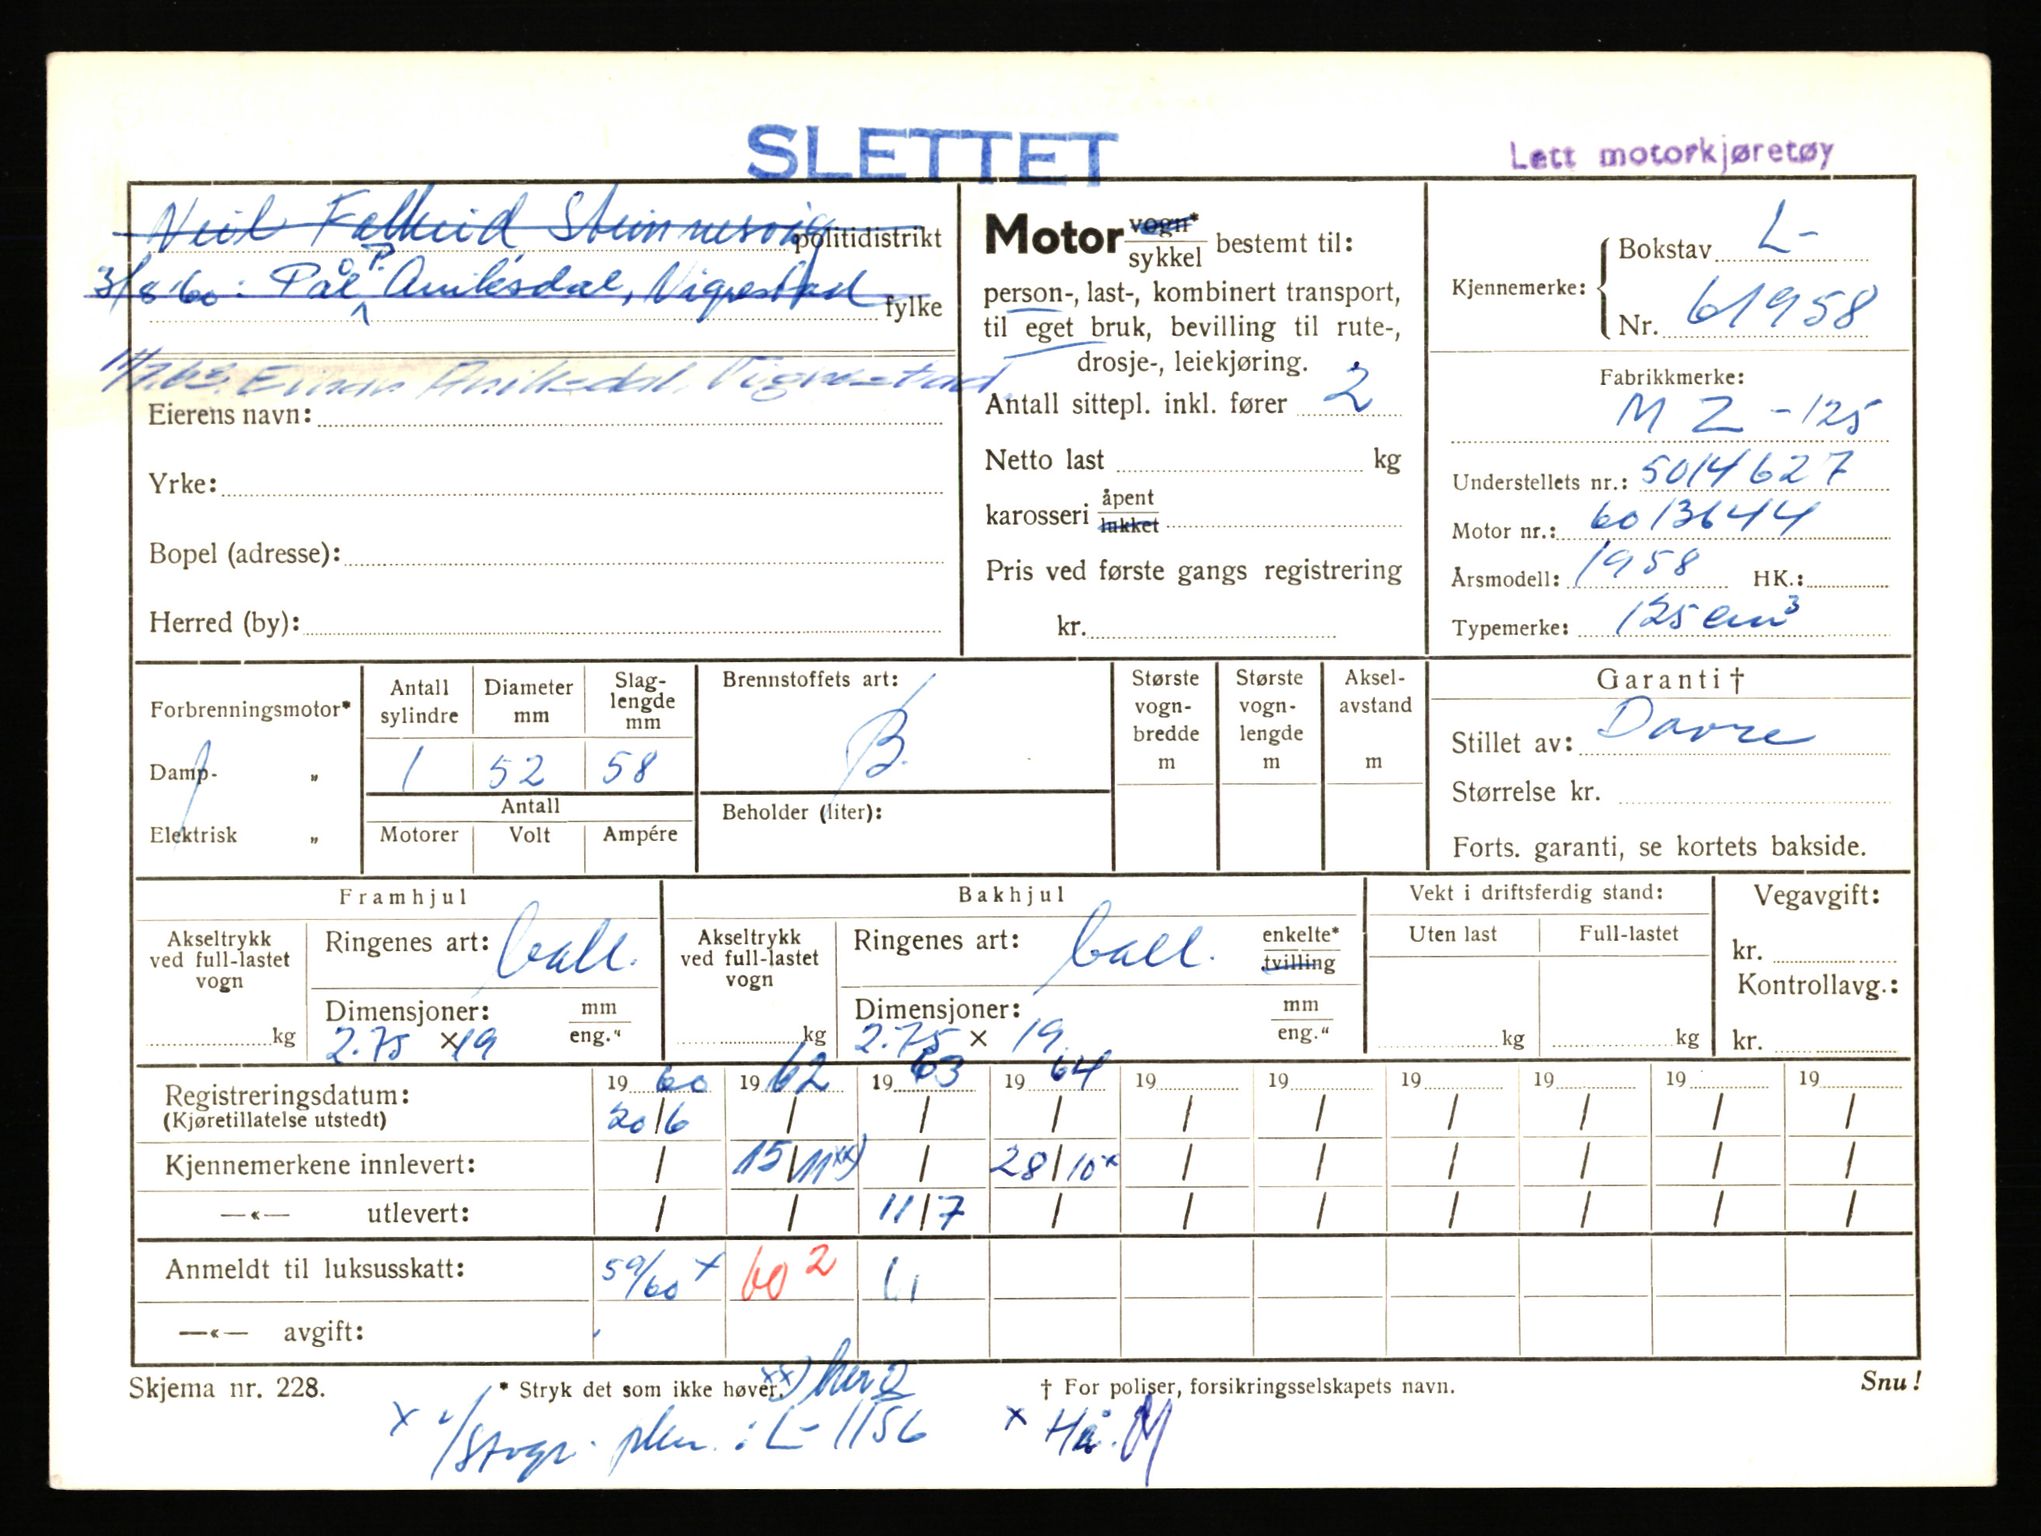 SLETTET
Lett motorkjøretøy
politidistrikt
3/8 60: Pål P. Aniksdal, Vigrestad
fylke
11/7.63. Einar Aniksdal, Vigrestad
Eierens navn:
Yrke:
Bopel (adresse):
Herred (by):
Motor vogn* sykkel bestemt til:
person-, last-, kombinert transport,
til eget bruk, bevilling til rute-,
drosje-, leiekjøring.
Antall sittepl. inkl. fører 2
Netto last kg
karosseri åpent lukket
Pris ved første gangs registrering
kr.
Kjennemerke:
Bokstav L-
Nr. 61958
Fabrikkmerke:
M Z - 125
Understellets nr.: 5014627
Motor nr.: 6013644
Årsmodell: 1958 HK.:
Typemerke: 125 cm³
Forbrenningsmotor*
Damp- „
Elektrisk „
Antall sylindre
1
Diameter mm
52
Slag-lengde mm
58
Antall
Motorer Volt Ampére
Brennstoffets art:
B.
Beholder (liter):
Største vogn-bredde m
Største vogn-lengde m
Aksel-avstand m
Garanti †
Stillet av:
Størrelse kr.
Forts. garanti, se kortets bakside.
Framhjul
Akseltrykk ved full-lastet vogn
kg
Ringenes art: ball.
Dimensjoner: mm eng."
2.75 x 19
Bakhjul
Akseltrykk ved full-lastet vogn
kg
Ringenes art: ball. enkelte* tvilling
Dimensjoner: mm eng."
2.75 x 19.
Vekt i driftsferdig stand:
Uten last Full-lastet
kg kg
Vegavgift:
kr.
Kontrollavg.:
kr.
Registreringsdatum: 19 60 19 62 19 63 19 64 19 19 19 19 19 19
(Kjøretillatelse utstedt) 20/6 / / / / / / / / /
Kjennemerkene innlevert: / 15/11 xx) / 28/10 x / / / / / /
—«— utlevert: / / 11/7 / / / / / / /
Anmeldt til luksusskatt: 59/60 x 60 2
—«— avgift:
Skjema nr. 228.
* Stryk det som ikke høver.
xx)
† For poliser, forsikringsselskapets navn.
Snu!
x
: L- 1156
x Hå.